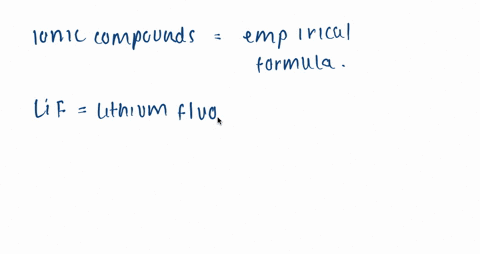 ionic compounds = empirical
formula.
LiF = Lithium fluo